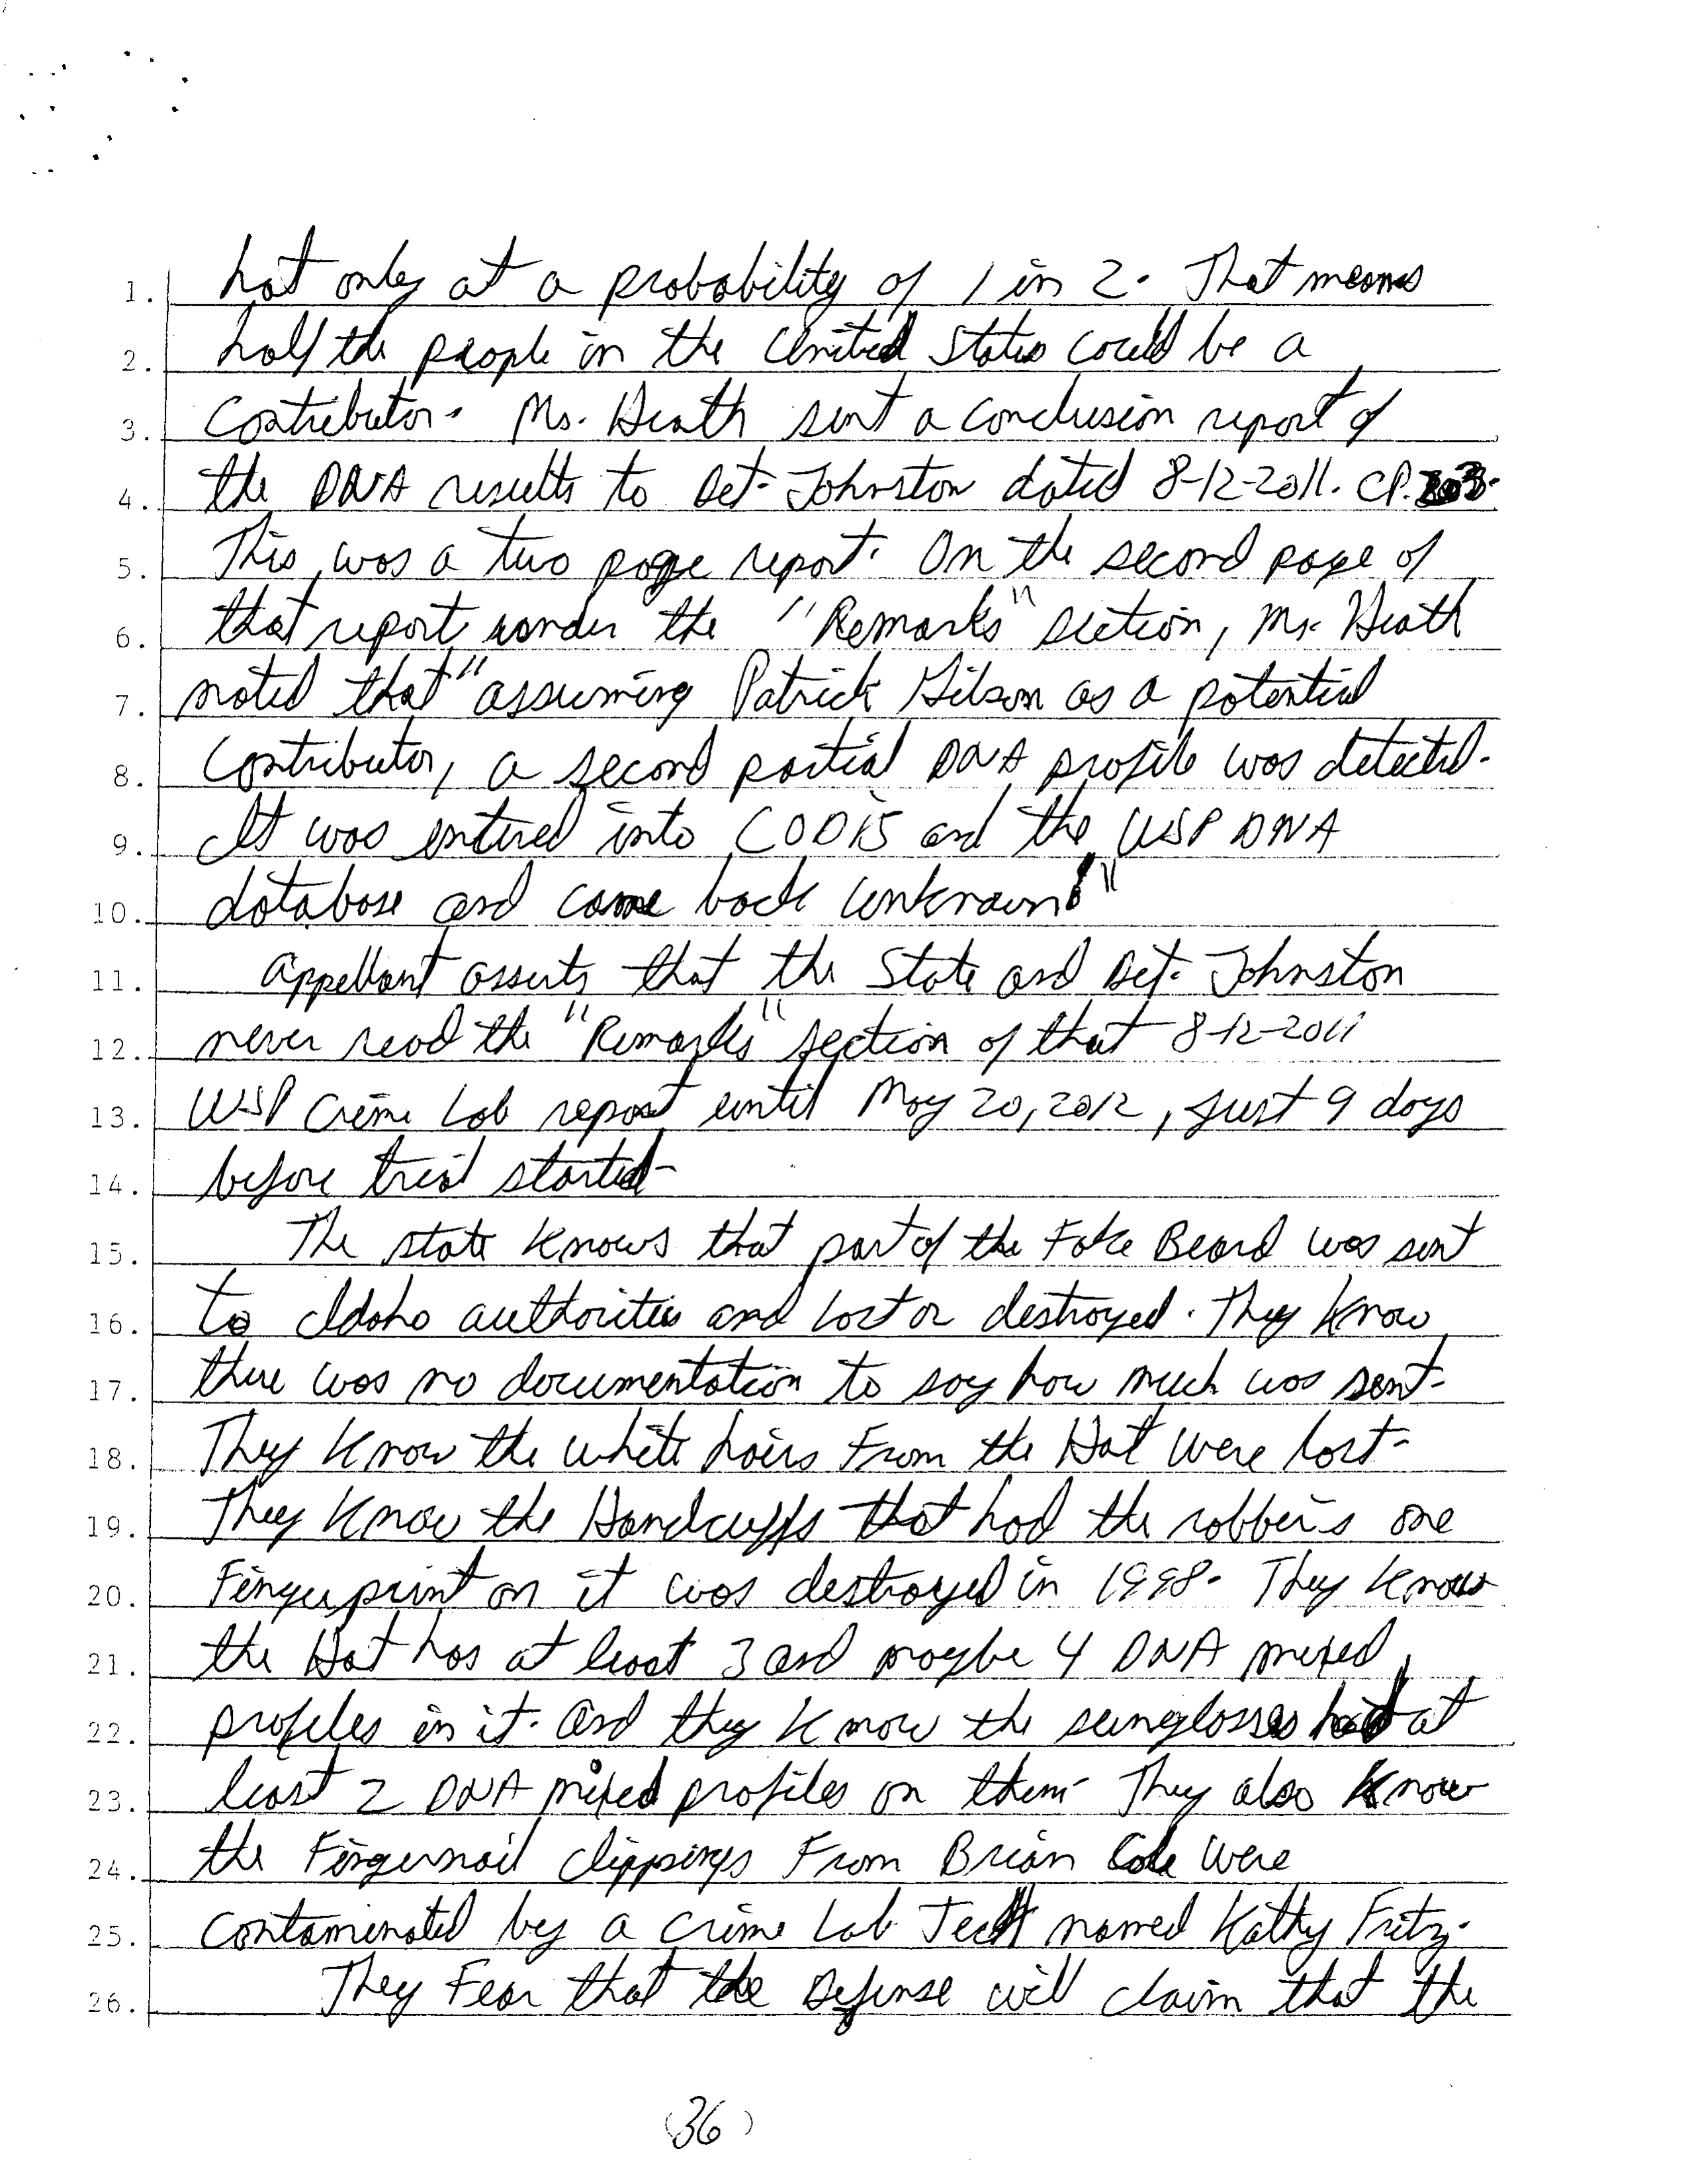 1. hat only at a probability of 1 in 2. That means
2. half the people in the United States could be a
3. Contributor. Ms. Heath sent a conclusion report of
4. the DNA results to Det. Johnston dated 8-12-2011. CP.
5. This was a two page report. On the second page of
6. that report under the "Remarks" section, Ms. Heath
7. noted that "assuming Patrick Gibson as a potential
8. Contributor, a second partial DNA profile was detected.
9. It was entered into CODIS and the WSP DNA
10. database and came back unknown."
11. Appellant asserts that the State and Det. Johnston
12. never read the "Remarks" section of that 8-12-2011
13. WSP Crime Lab report until May 20, 2012, just 9 days
14. before trial started.
15. The state knows that part of the Fake Beard was sent
16. to Idaho authorities and lost or destroyed. They know
17. there was no documentation to say how much was sent.
18. They know the white hairs From the Hat were lost.
19. They know the Handcuffs that had the robbers one
20. Fingerprint on it was destroyed in 1998. They know
21. the Hat has at least 3 and maybe 4 DNA mixed
22. profiles in it. And they know the sunglasses had at
23. least 2 DNA mixed profiles on them. They also know
24. the Fingernail clippings From Brian Cole were
25. contaminated by a crime Lab Tech named Kathy Fritz.
26. They Fear that the Defense will claim that the
(36)